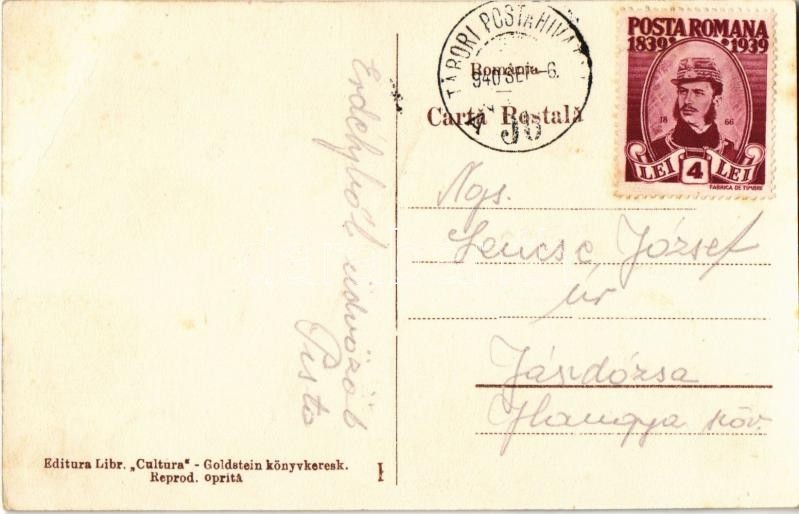 Erdélyből üdvözöl
Pista
Editura Libr. „Cultura“ - Goldstein könyvkeresk.
Reprod. oprită
TÁBORI POSTAHIVATAL
940 SEP -6.
România
Cartă Postală
POSTA ROMANA
1839 1939
18 66
LEI 4 LEI
FABRICA DE TIMBRE
Ngs.
József
úr
Jászdózsa
Hangya szöv.